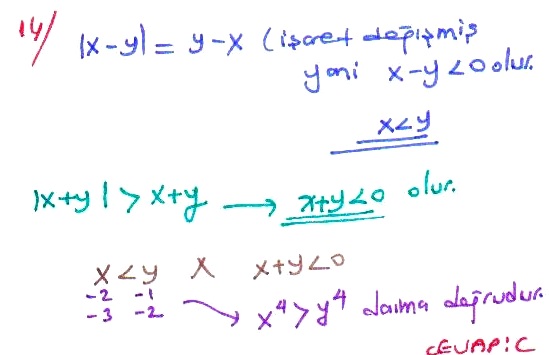 14/ |x-y| = y-x (işaret değişmiş
yani x-y<0 olur.
x<y
|x+y| > x+y → x+y<0 olur.
x<y x x+y<0
-2 -1
-3 -2 → x⁴>y⁴ daima doğrudur.
CEVAP: C